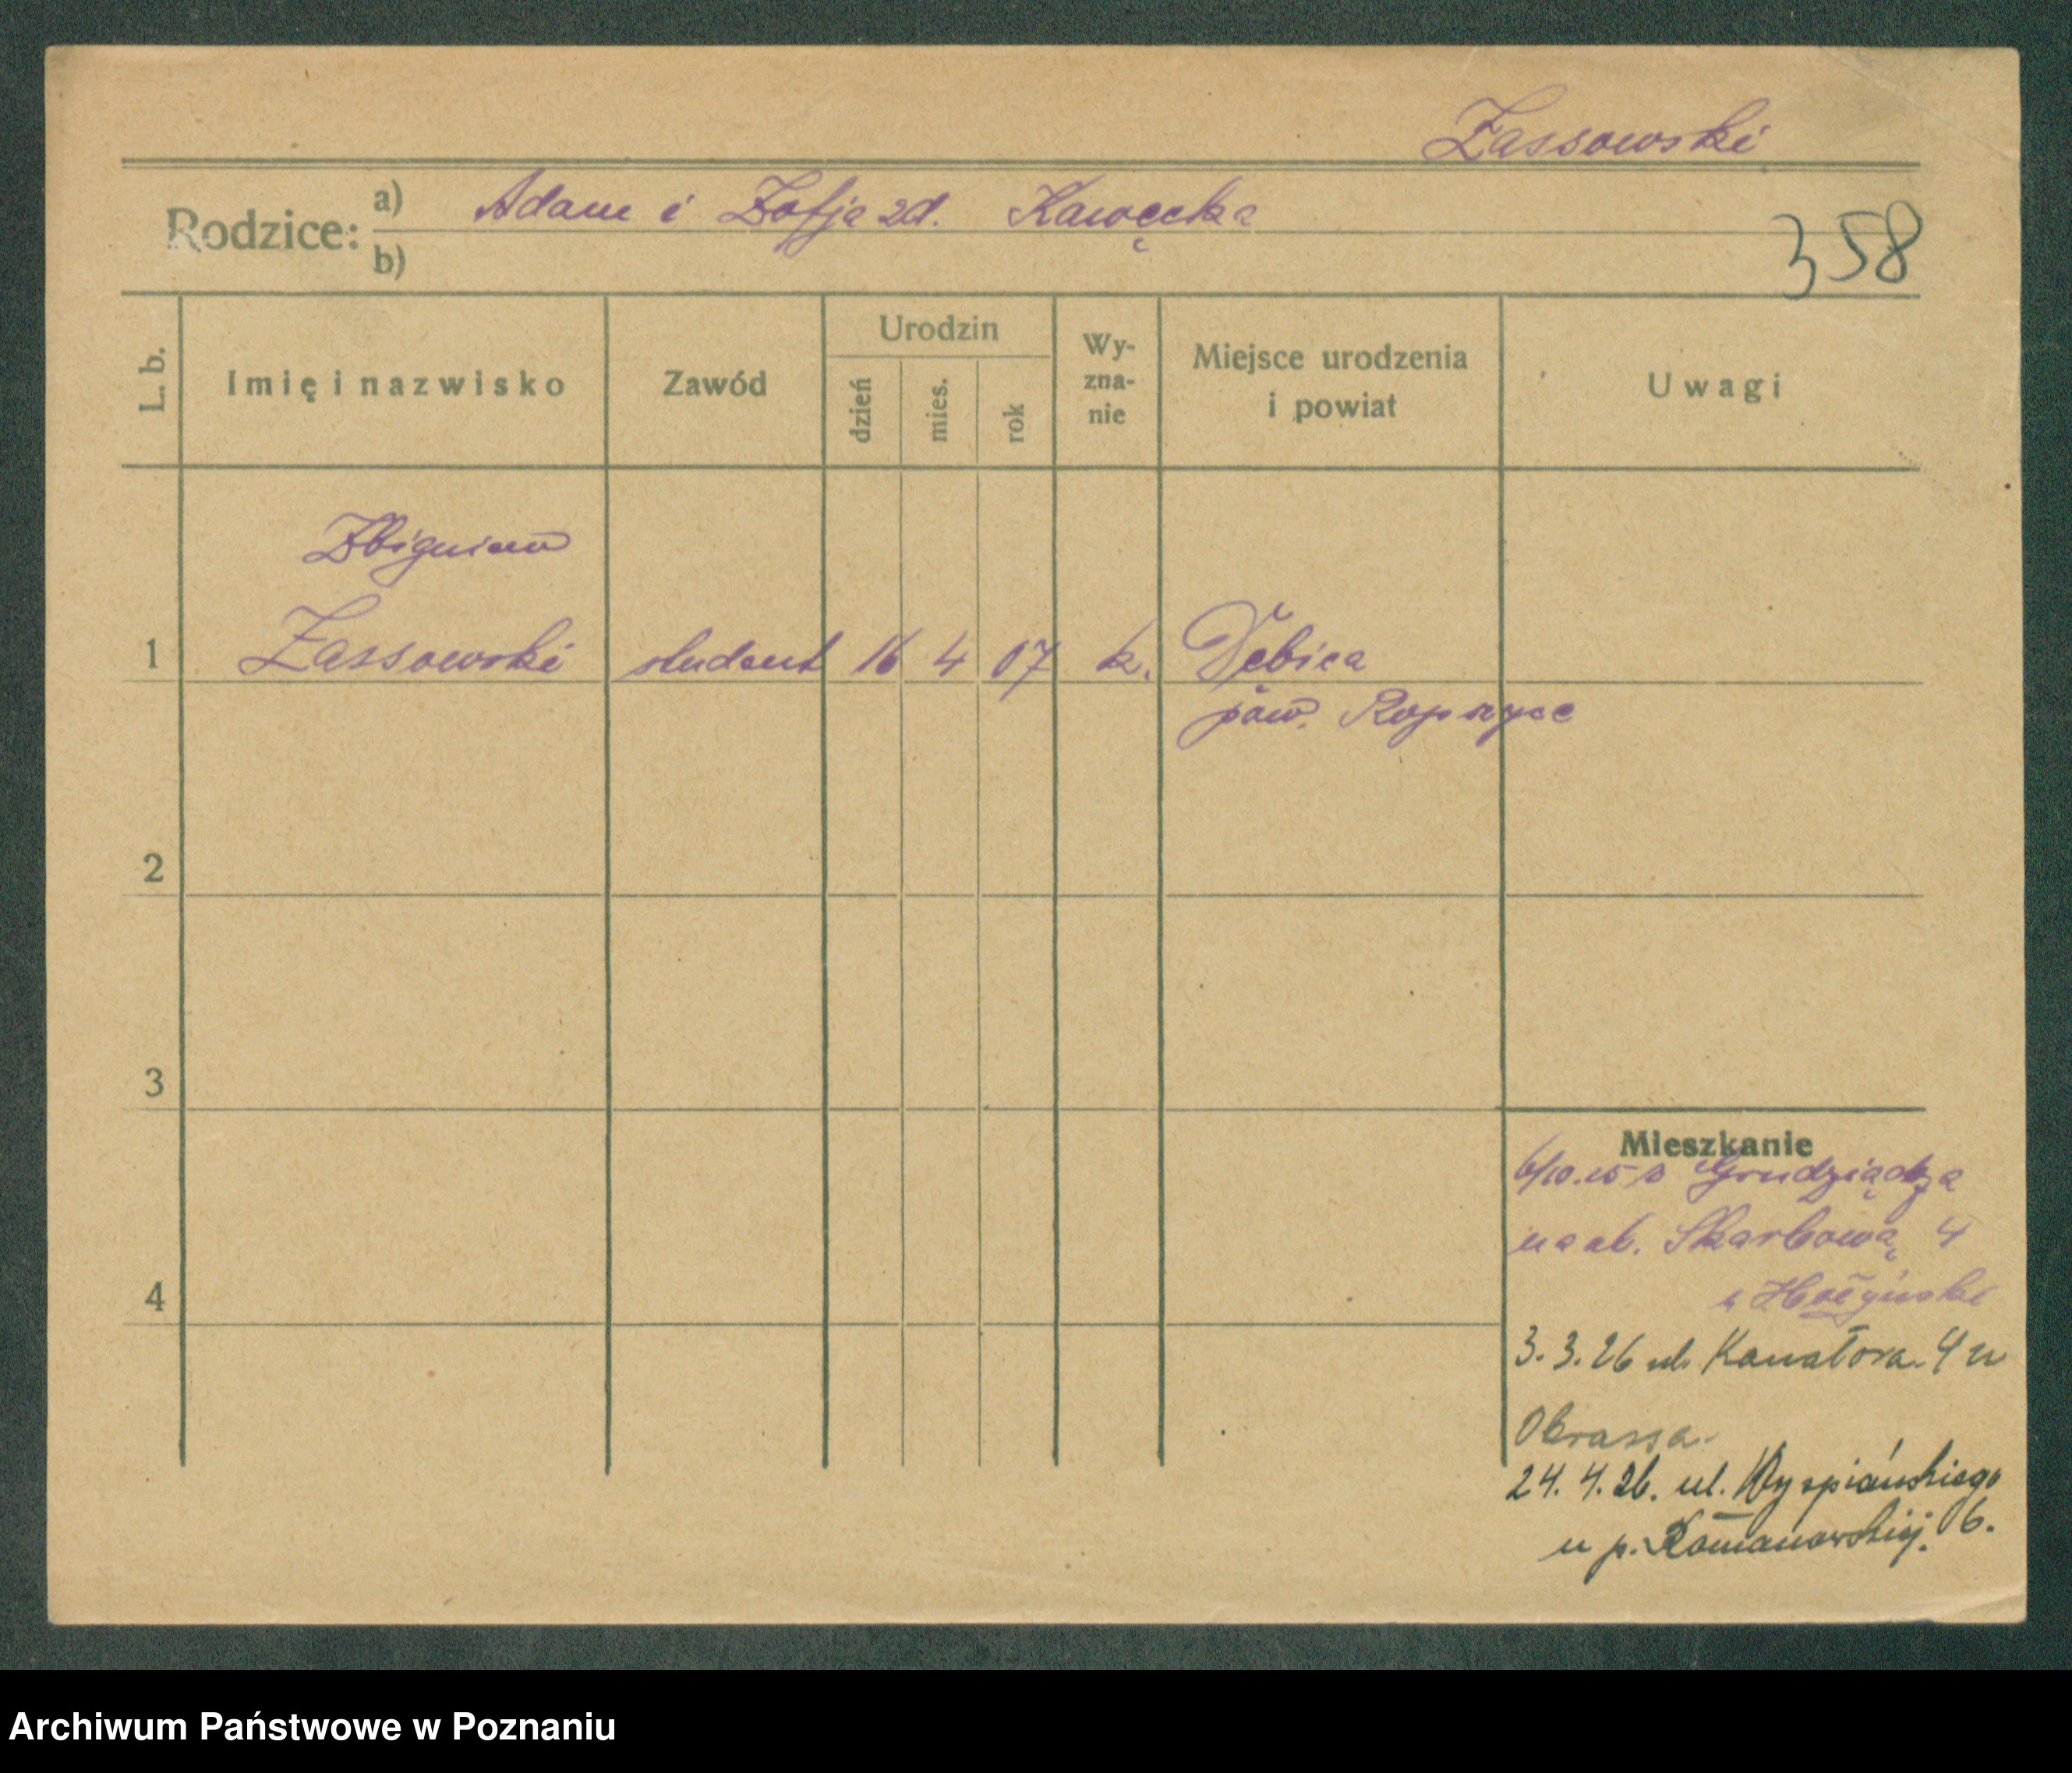 Zassowski
Rodzice: a) Adam i Zofja zd. Kawęcka
b)
358
L. b.
Imię i nazwisko
Zawód
Urodzin
dzień
mies.
rok
Wy-
zna-
nie
Miejsce urodzenia
i powiat
Uwagi
Zbigniew
1 Zassowski student 16 4 07 k. Dębica
pow. Ropczyce
2
3
4
Mieszkanie
6/10.25 z Grudziądza
na ul. Skarbową 4
u
3.3.26 ul. 4 u
24.4.26. ul. Wyspiańskiego
u p. Romanowskiej. 16.
Archiwum Państwowe w Poznaniu